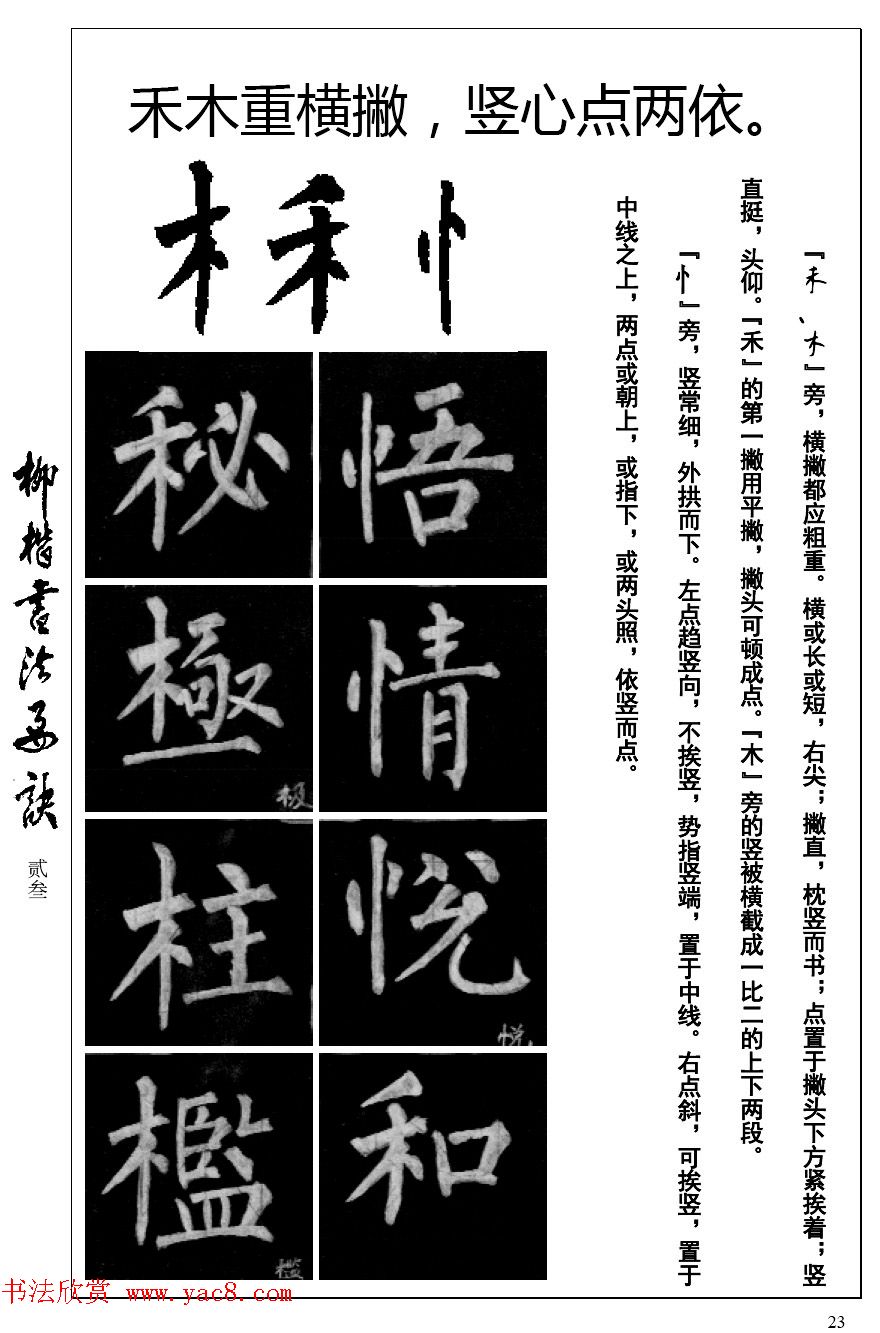 禾木重横撇，竖心点两依。
木 禾 忄
『禾、木』旁，横撇都应粗重。横或长或短，右尖；撇直，枕竖而书；点置于撇头下方紧挨着；竖
直挺，头仰。『禾』的第一撇用平撇，撇头可顿成点。『木』旁的竖被横截成一比二的上下两段。
『忄』旁，竖常细，外拱而下。左点趋竖向，不挨竖，势指竖端，置于中线。右点斜，可挨竖，置于
中线之上，两点或朝上，或指下，或两头照，依竖而点。
秘 悟
極 情
极
柱 悦
悦
檻 和
槛
柳楷书法要诀
贰叁
书法欣赏 www.yac8.com
23